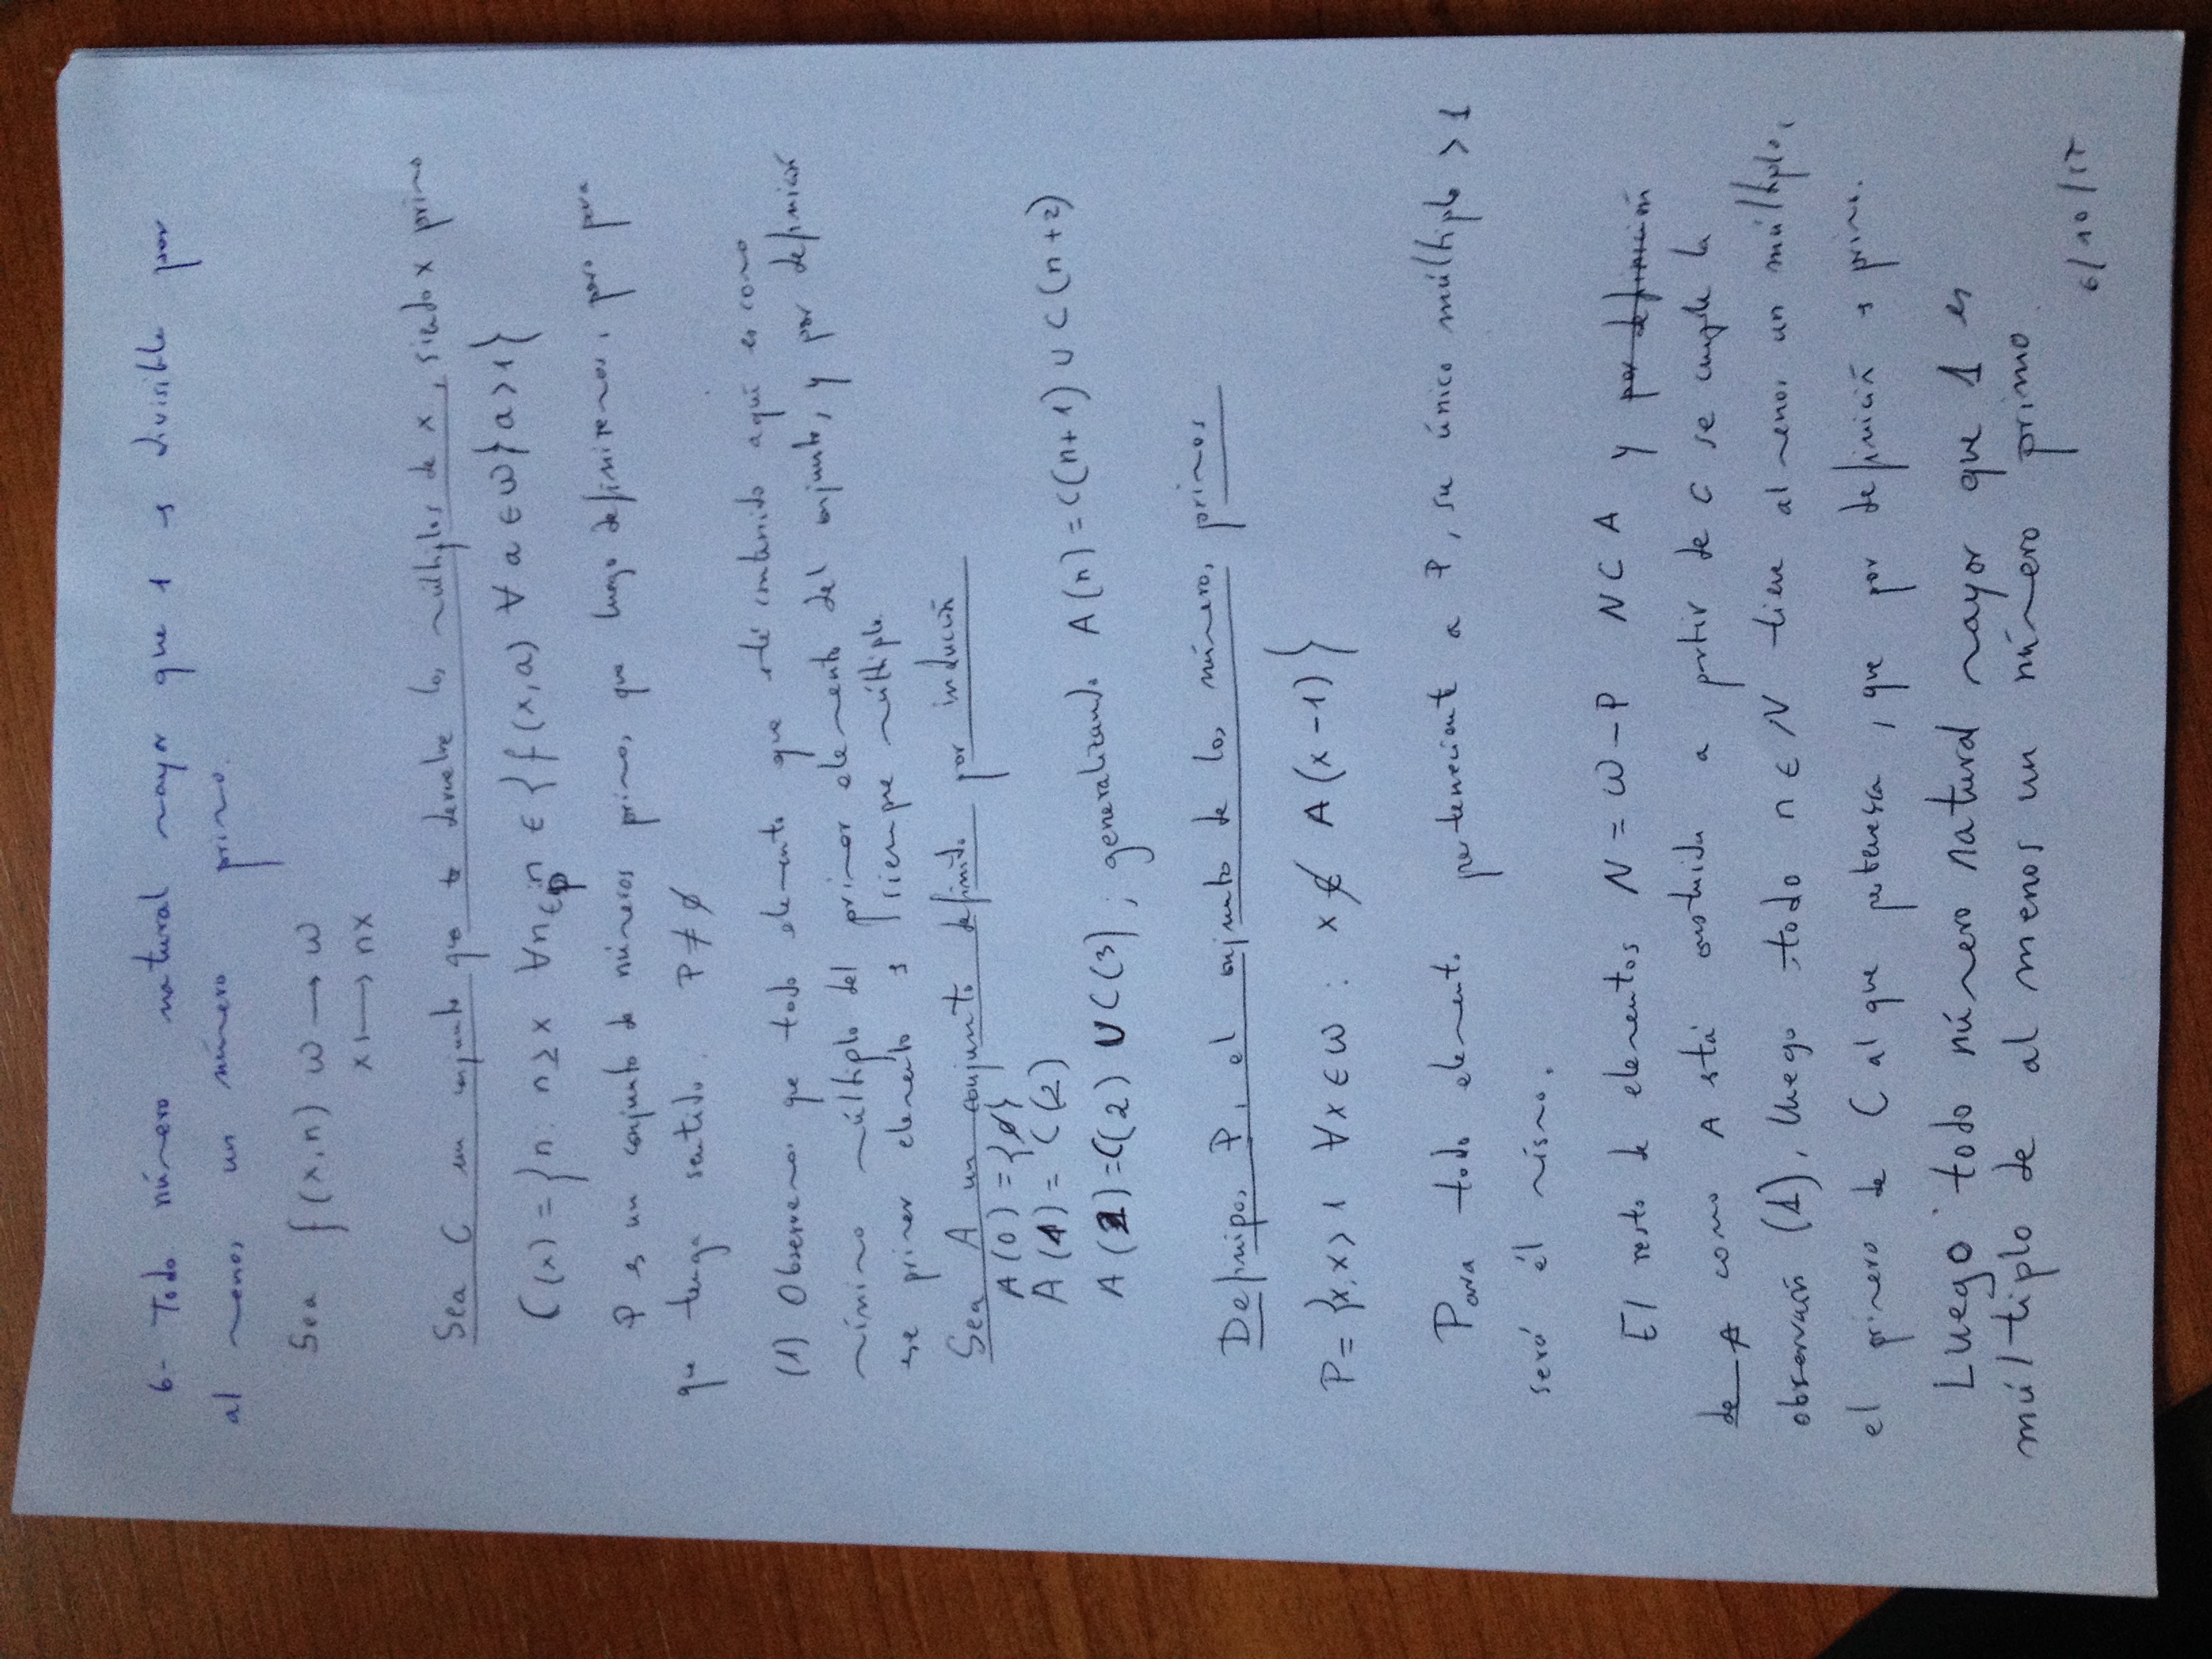 6- Todo número natural mayor que 1 es divisible por
al menos un número primo.
Sea f(x,n) ω → ω
x ↦ nx
Sea C un conjunto que te devuelve los múltiplos de x, siendo x primo
C(x) = {n: n ≥ x ∀n∈p n ∈ {f(x,a) ∀ a ∈ ω} a > 1}
P es un conjunto de números primos, que luego definiremos, pero para
que tenga sentido. P ≠ ∅
(1) Observemos que todo elemento que esté contenido aquí es como
mínimo múltiplo del primer elemento del conjunto, y por definición
ese primer elemento es siempre múltiplo.
Sea A un conjunto definido por inducción
A(0) = {∅}
A(1) = C(2)
A(2) = C(2) ∪ C(3) ; generalizando A(n) = C(n+1) ∪ C(n+2)
Definipos P, el conjunto de los números primos
P = {x, x > 1 ∀x ∈ ω : x ∉ A(x-1)}
Para todo elemento perteneciente a P, su único múltiplo > 1
será él mismo.
El resto de elementos N = ω - P N ⊂ A y por definición
de A como A está construida a partir de C se cumple la
observación (1), luego todo n ∈ N tiene al menos un múltiplo,
el primero de C al que pertenezca, que por definición es primo.
Luego todo número natural mayor que 1 es
múltiplo de al menos un número primo.
6/10/17